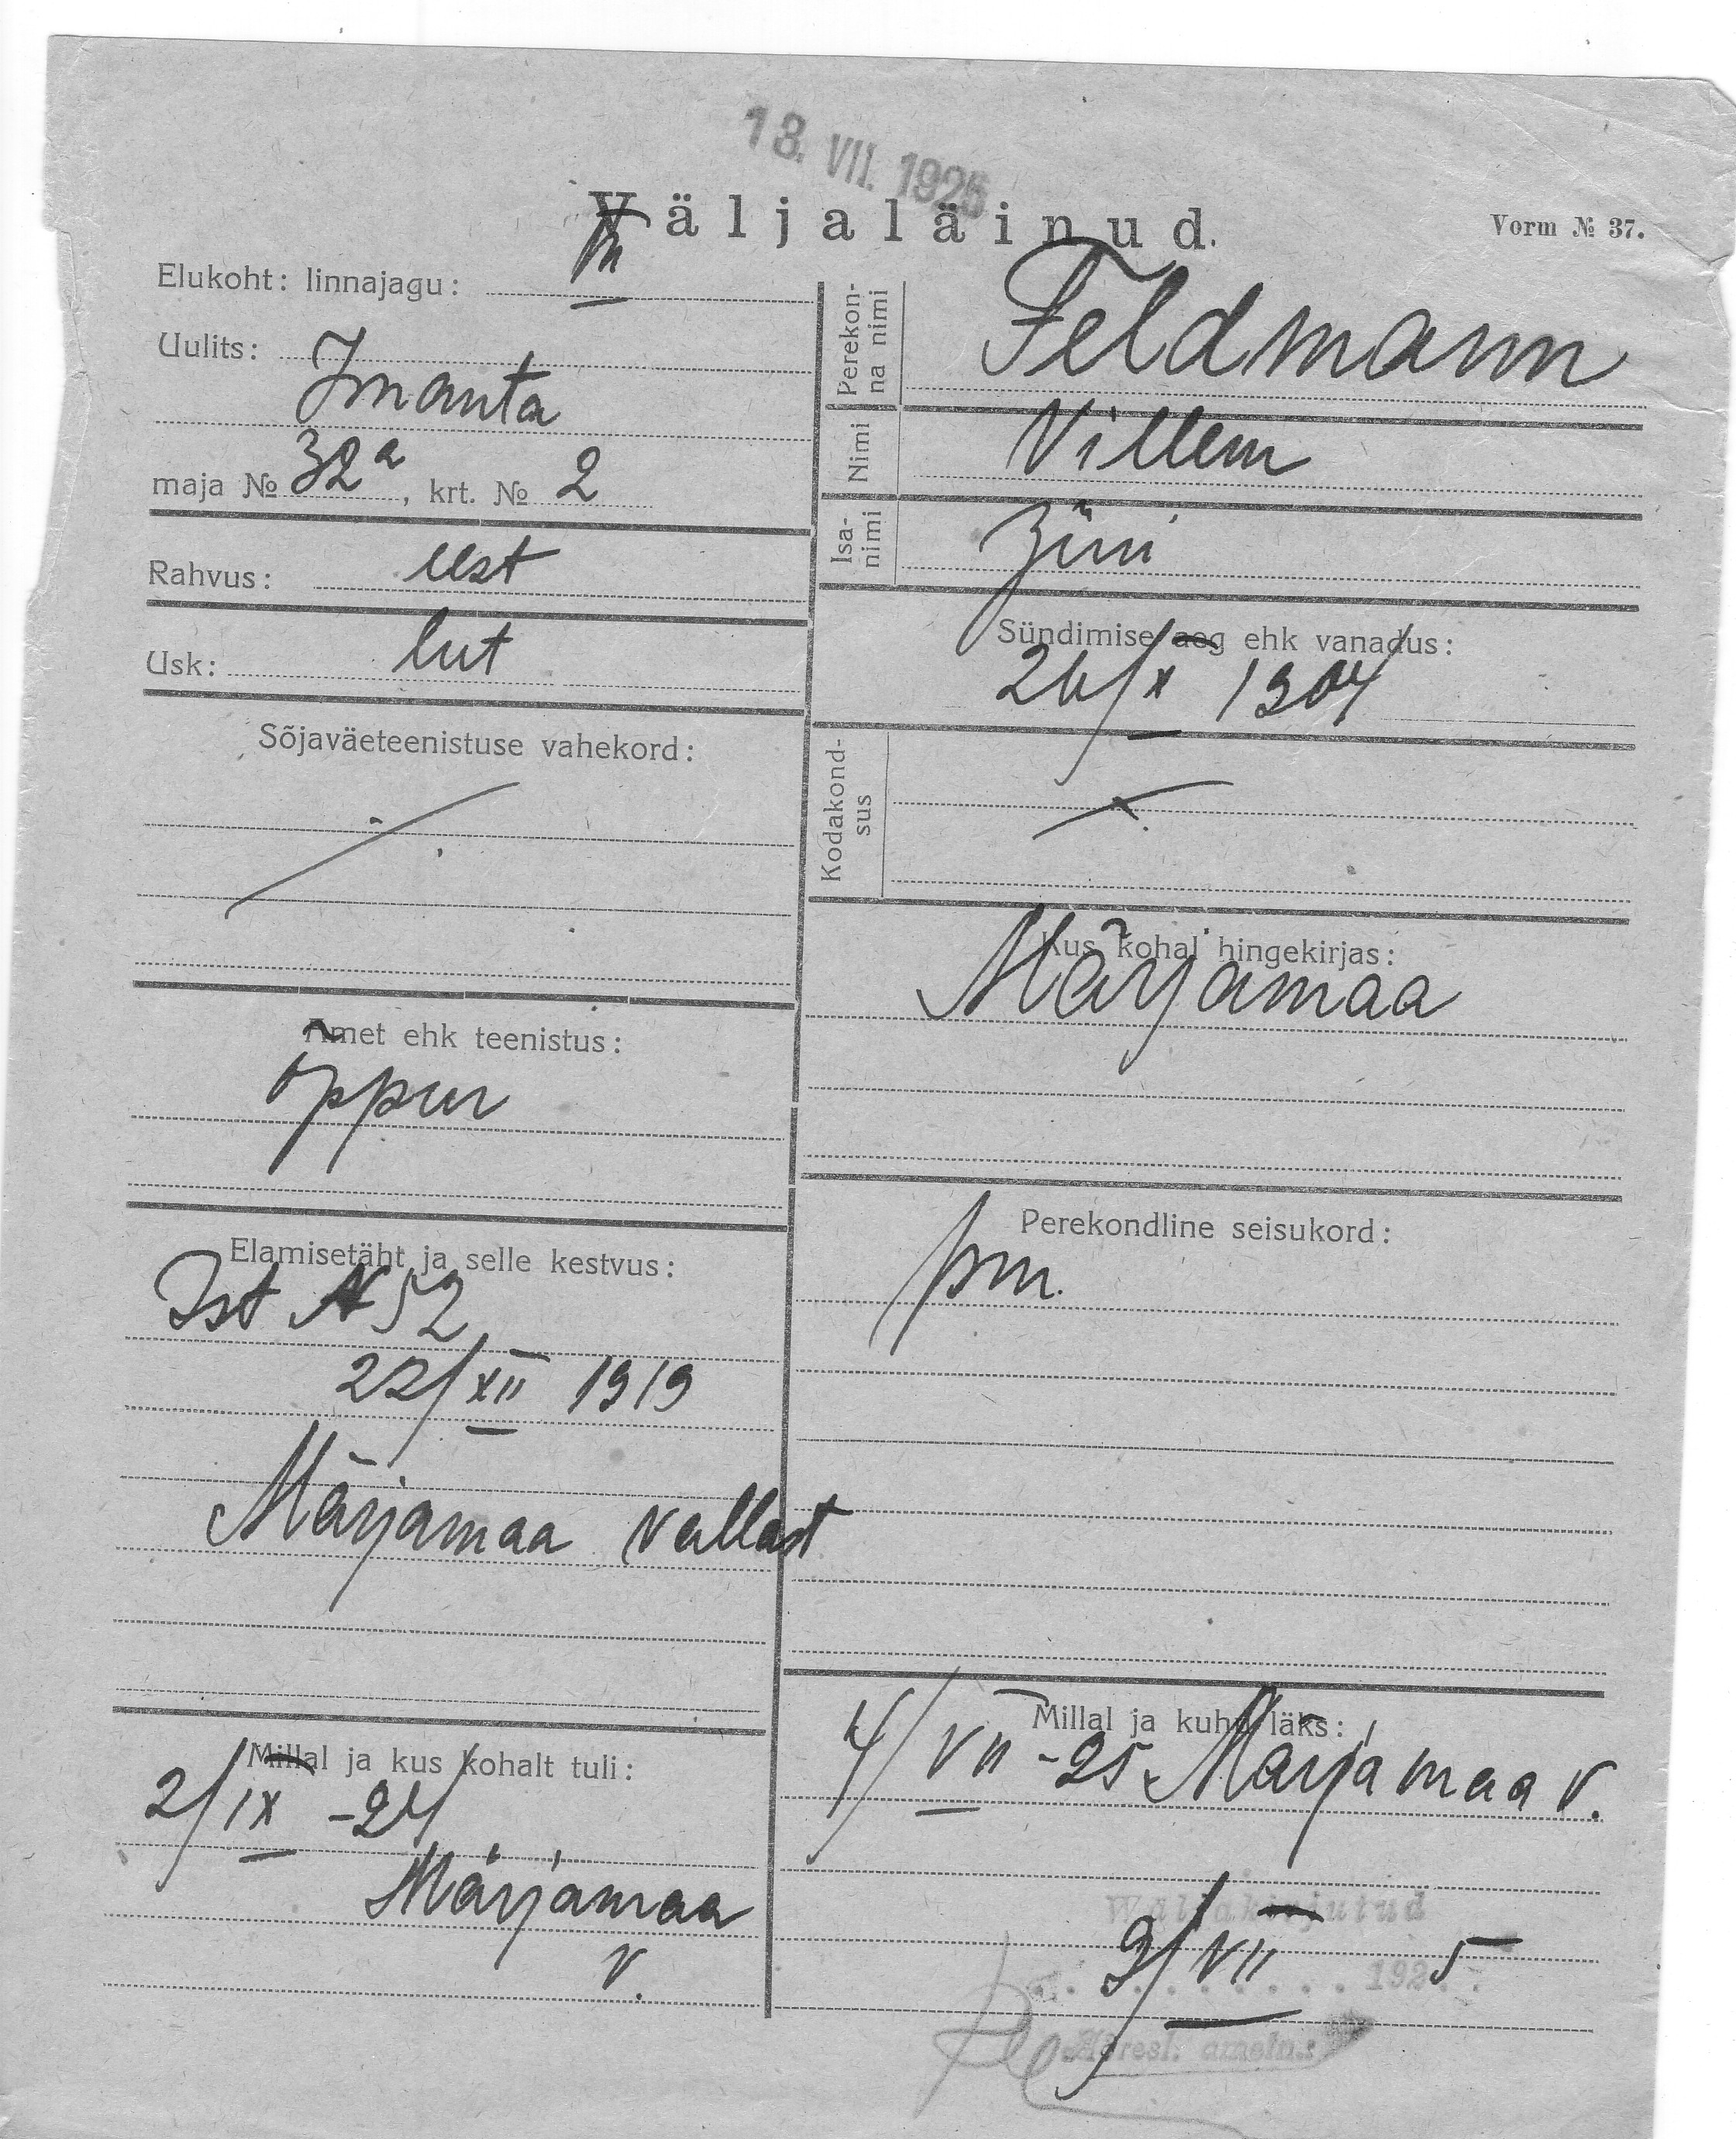 13. VII. 1925
Väljaläinud.
Vorm № 37.
Elukoht: linnajagu:
Uulits:
Imanta
maja № 32a, krt. № 2
Rahvus: eest
Usk: lut
Sõjaväeteenistuse vahekord:
Amet ehk teenistus:
õppur
Elamisetäht ja selle kestvus:
Ist № 52
22/XII 1919
Märjamaa vallast
Millal ja kus kohalt tuli:
2/IX -24
Märjamaa
v.
Perekonna nimi
Feldmann
Nimi
Villem
Isanimi
Jüri
Sündimise aeg ehk vanadus:
26/X 1904
Kodakondsus
Kus kohal hingekirjas:
Märjamaa
Perekondline seisukord:
pm.
Millal ja kuhu läks:
4/VII -25 Märjamaa v.
Wäljakirjutud
9/VII 1925
Adresl. ametn.: